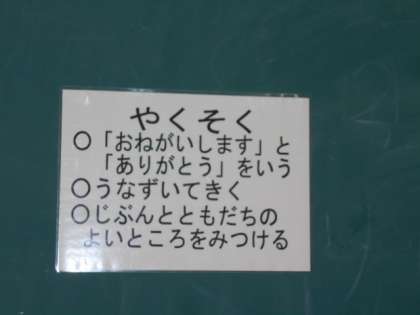 やくそく
○「おねがいします」と
「ありがとう」をいう
○うなずいてきく
○じぶんとともだちの
よいところをみつける